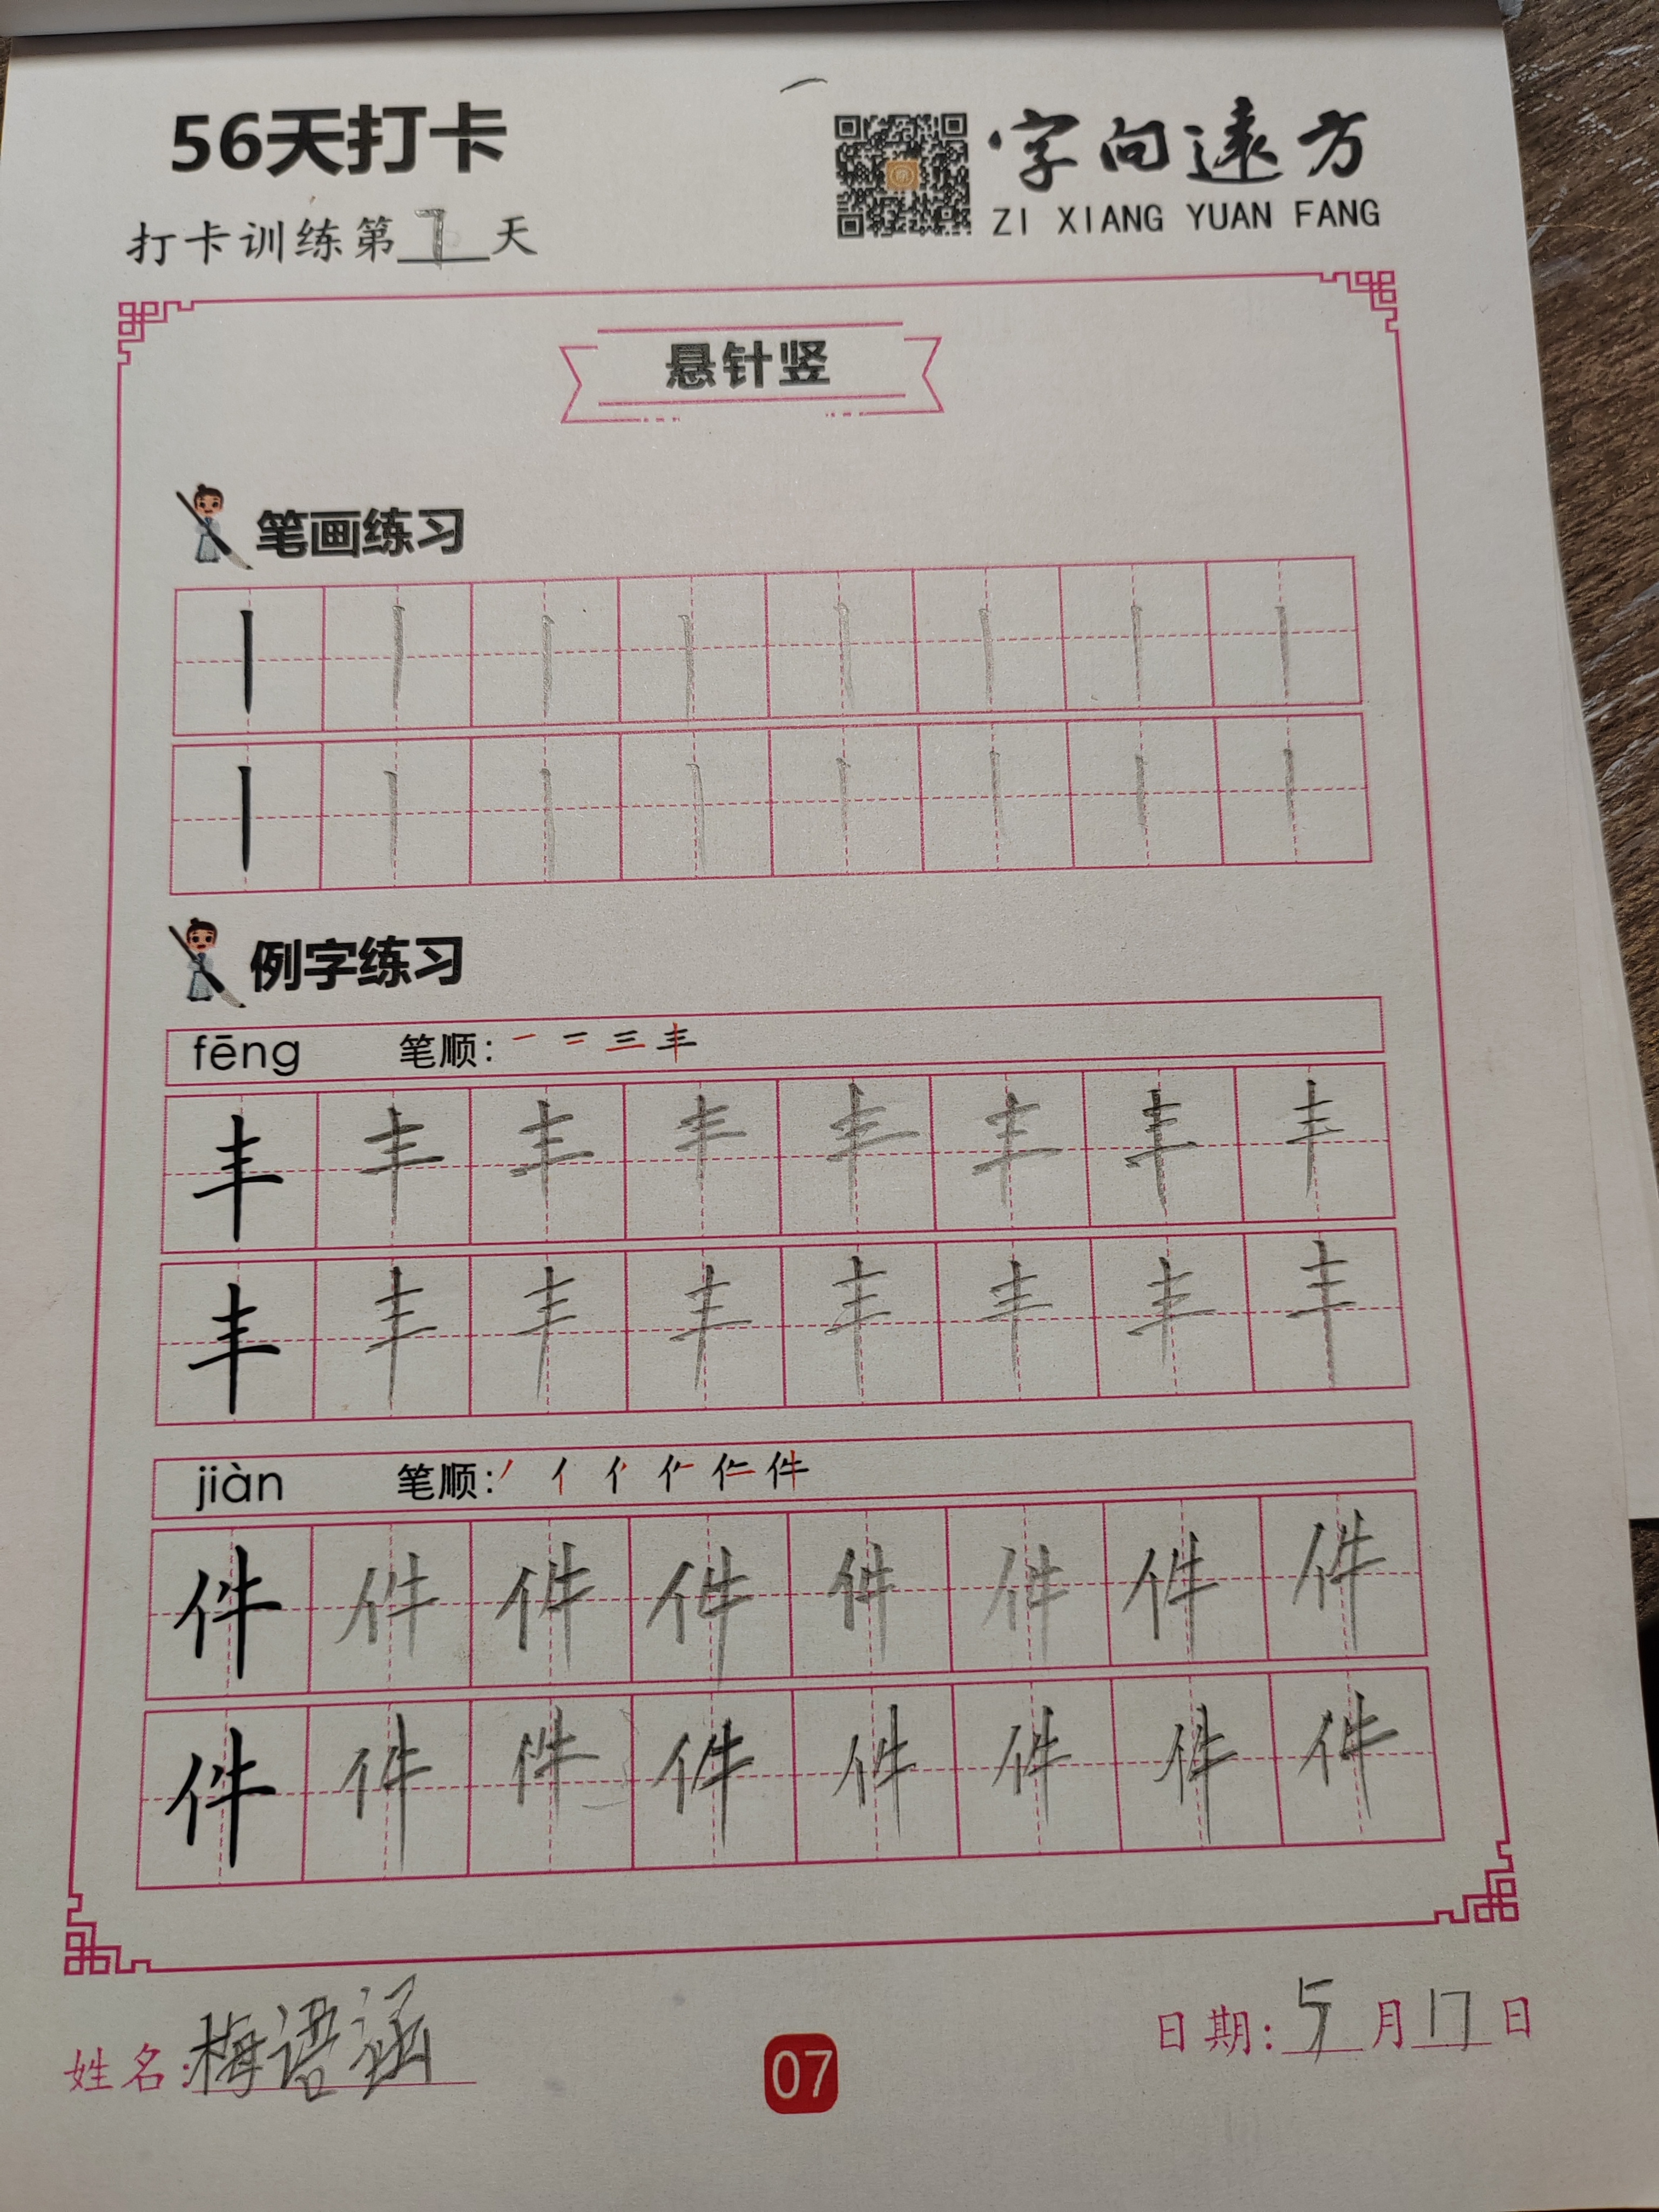 56天打卡
字向遠方
ZI XIANG YUAN FANG
打卡训练第7天
悬针竖
笔画练习
丨丨丨丨丨丨丨丨
丨丨丨丨丨丨丨丨
例字练习
fēng 笔顺: 一 二 三 丰
丰丰丰丰丰丰丰丰
丰丰丰丰丰丰丰丰
jiàn 笔顺: 件
件件件件件件件件
件件件件件件件件
姓名:梅语涵
07
日期:5月17日